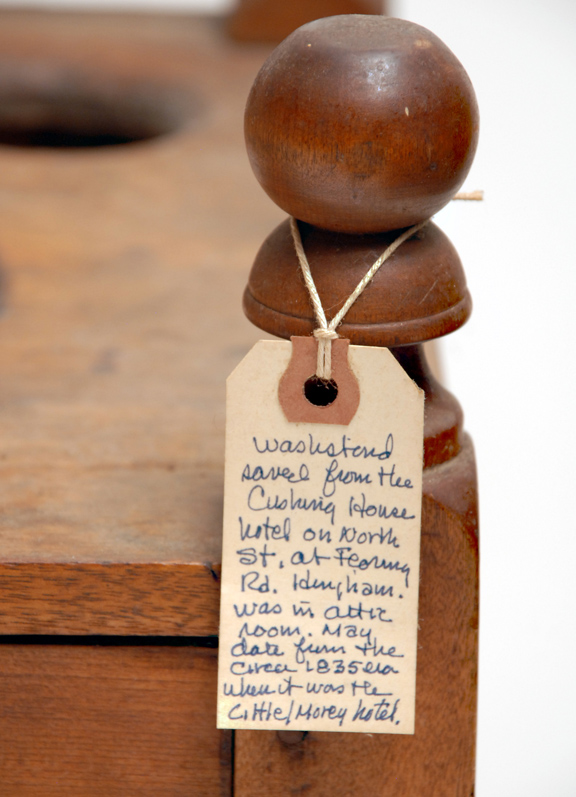 washstand
saved from the
Cushing House
hotel on North
St. at Fearing
Rd. Hingham.
was in attic
room. May
date from the
circa 1835 era
when it was the
Little/Morey hotel.